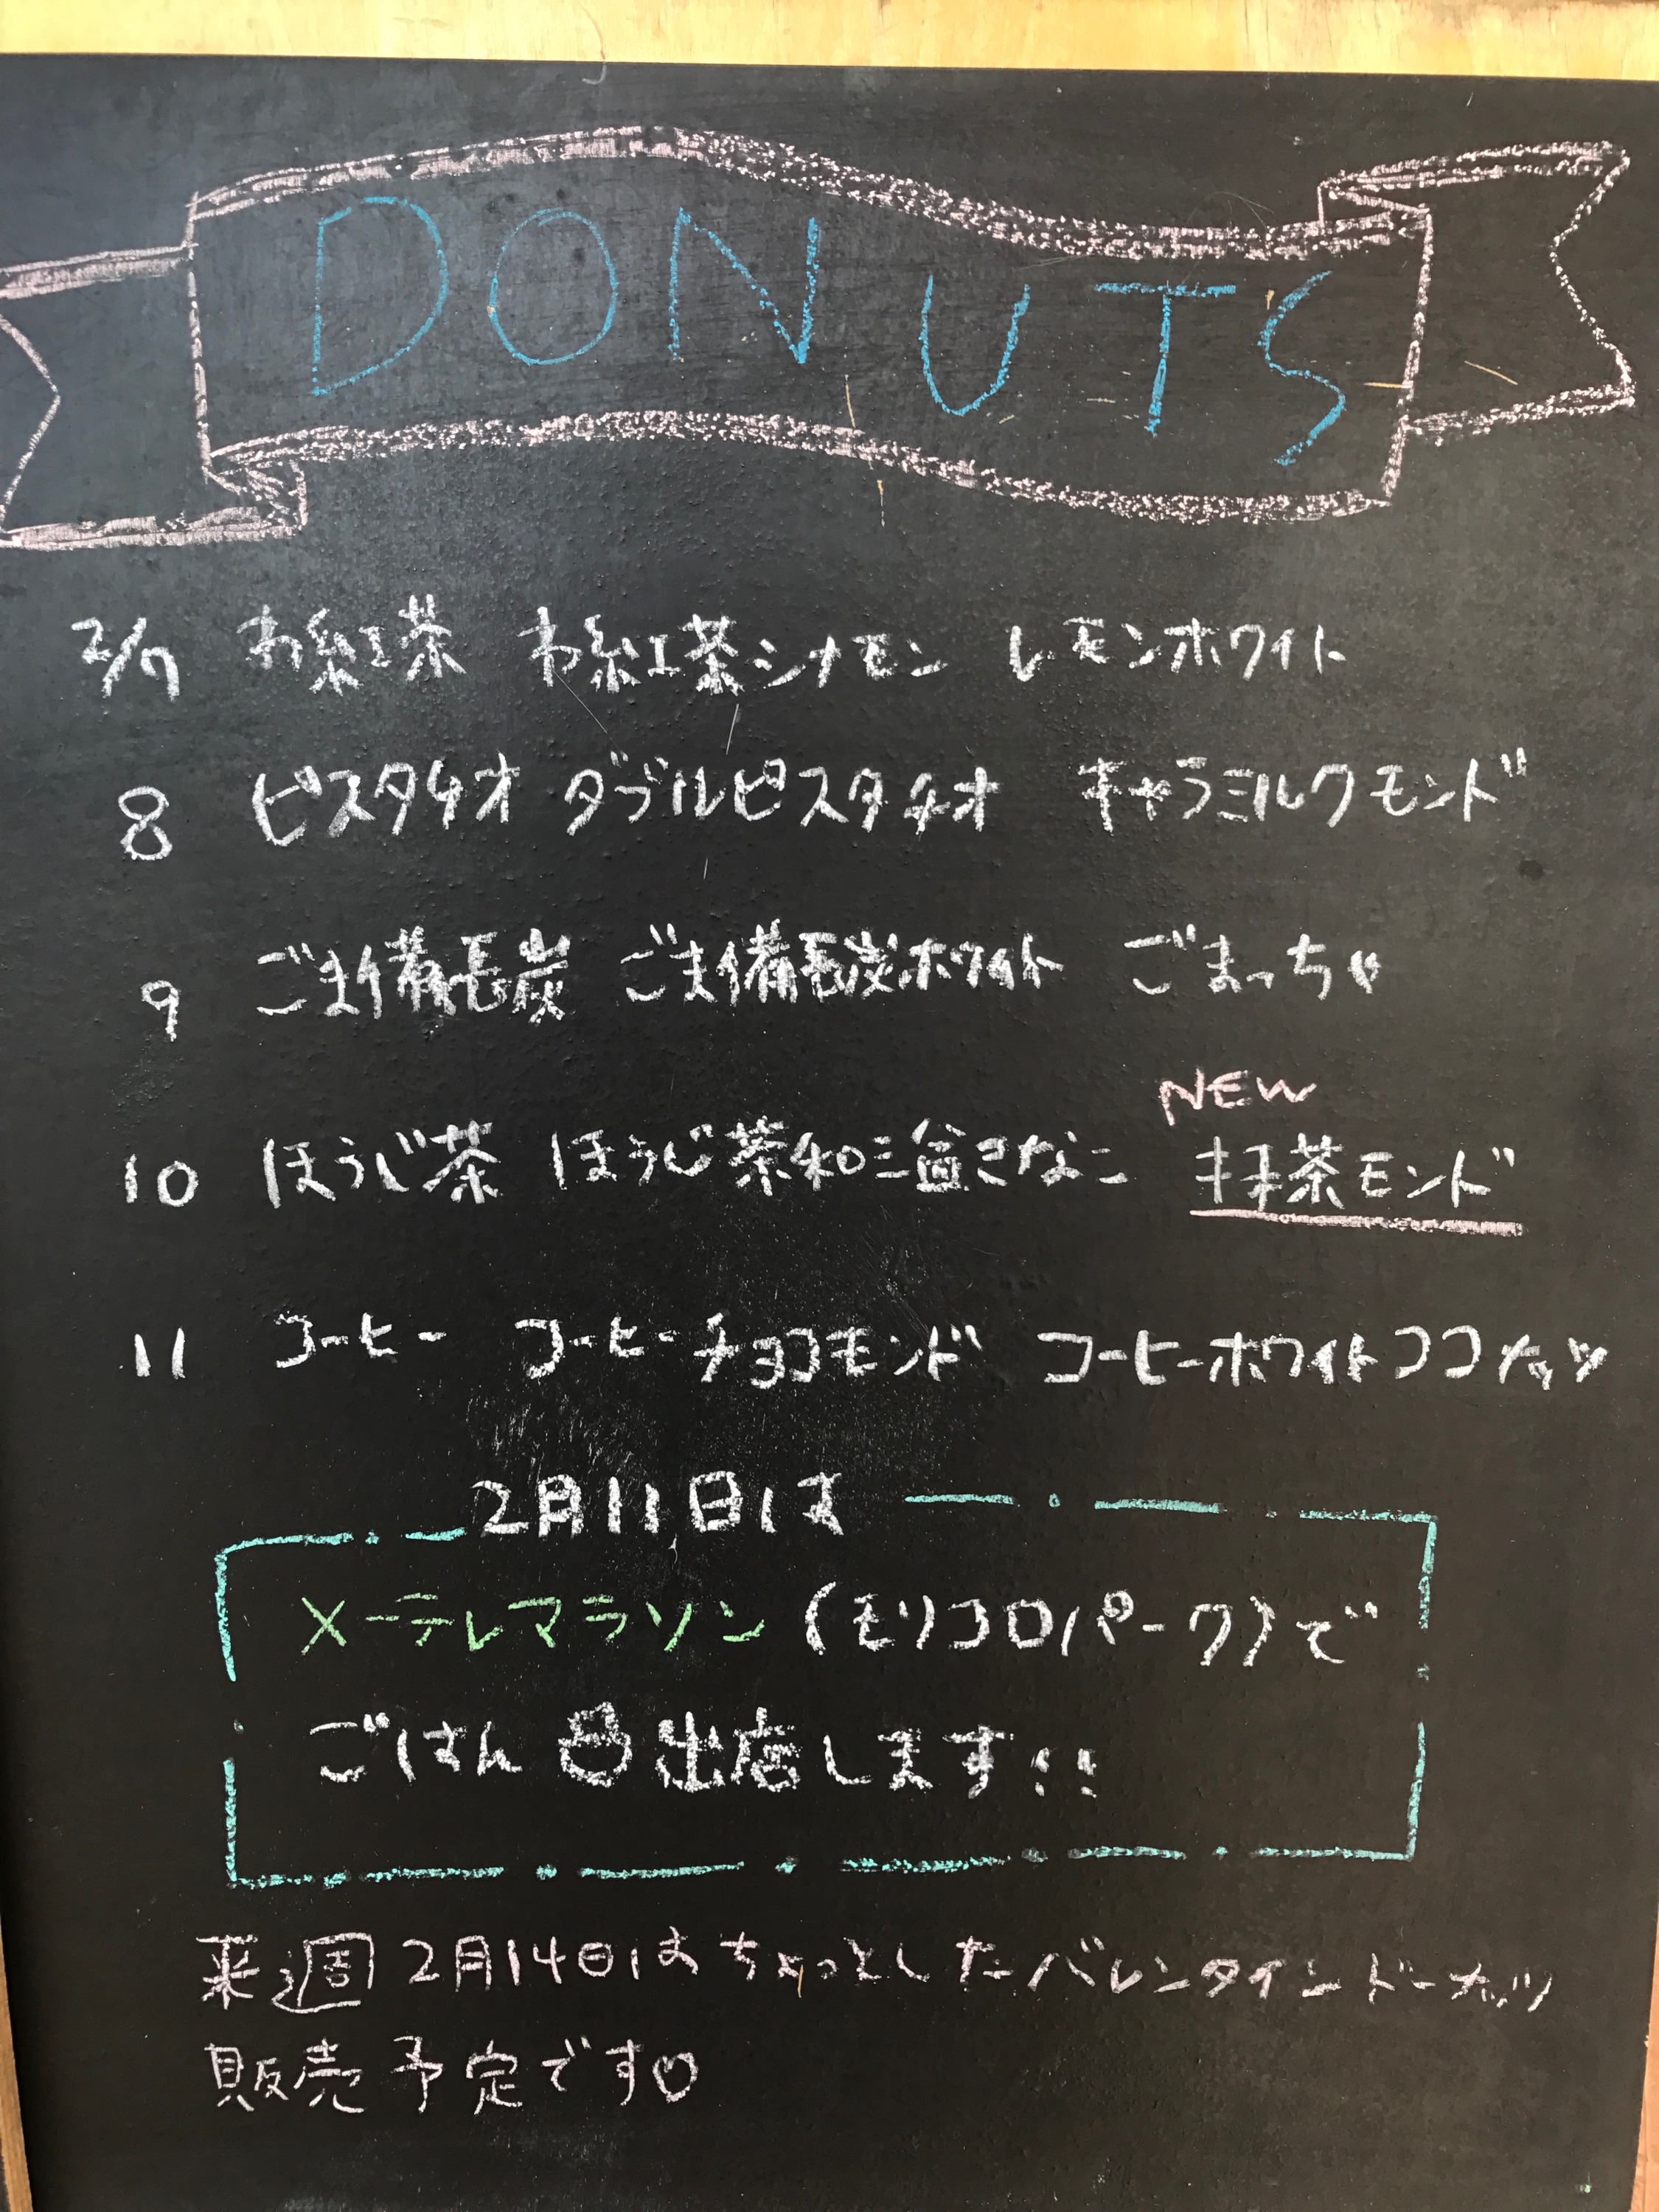 DONUTS
2/7 わ紅茶 わ紅茶シナモン レモンホワイト
8 ピスタチオ ダブルピスタチオ キャラミルクモンド
9 ごま備長炭 ごま備長炭ホワイト ごまっちゃ
NEW
10 ほうじ茶 ほうじ茶和三盆きなこ 抹茶モンド
11 コーヒー コーヒーチョコモンド コーヒーホワイトココナッツ
2月11日は
メ〜テレマラソン(モリコロパーク)で
ごはん 出店します!!
来週2月14日はちょっとしたバレンタインドーナッツ
販売予定です♡